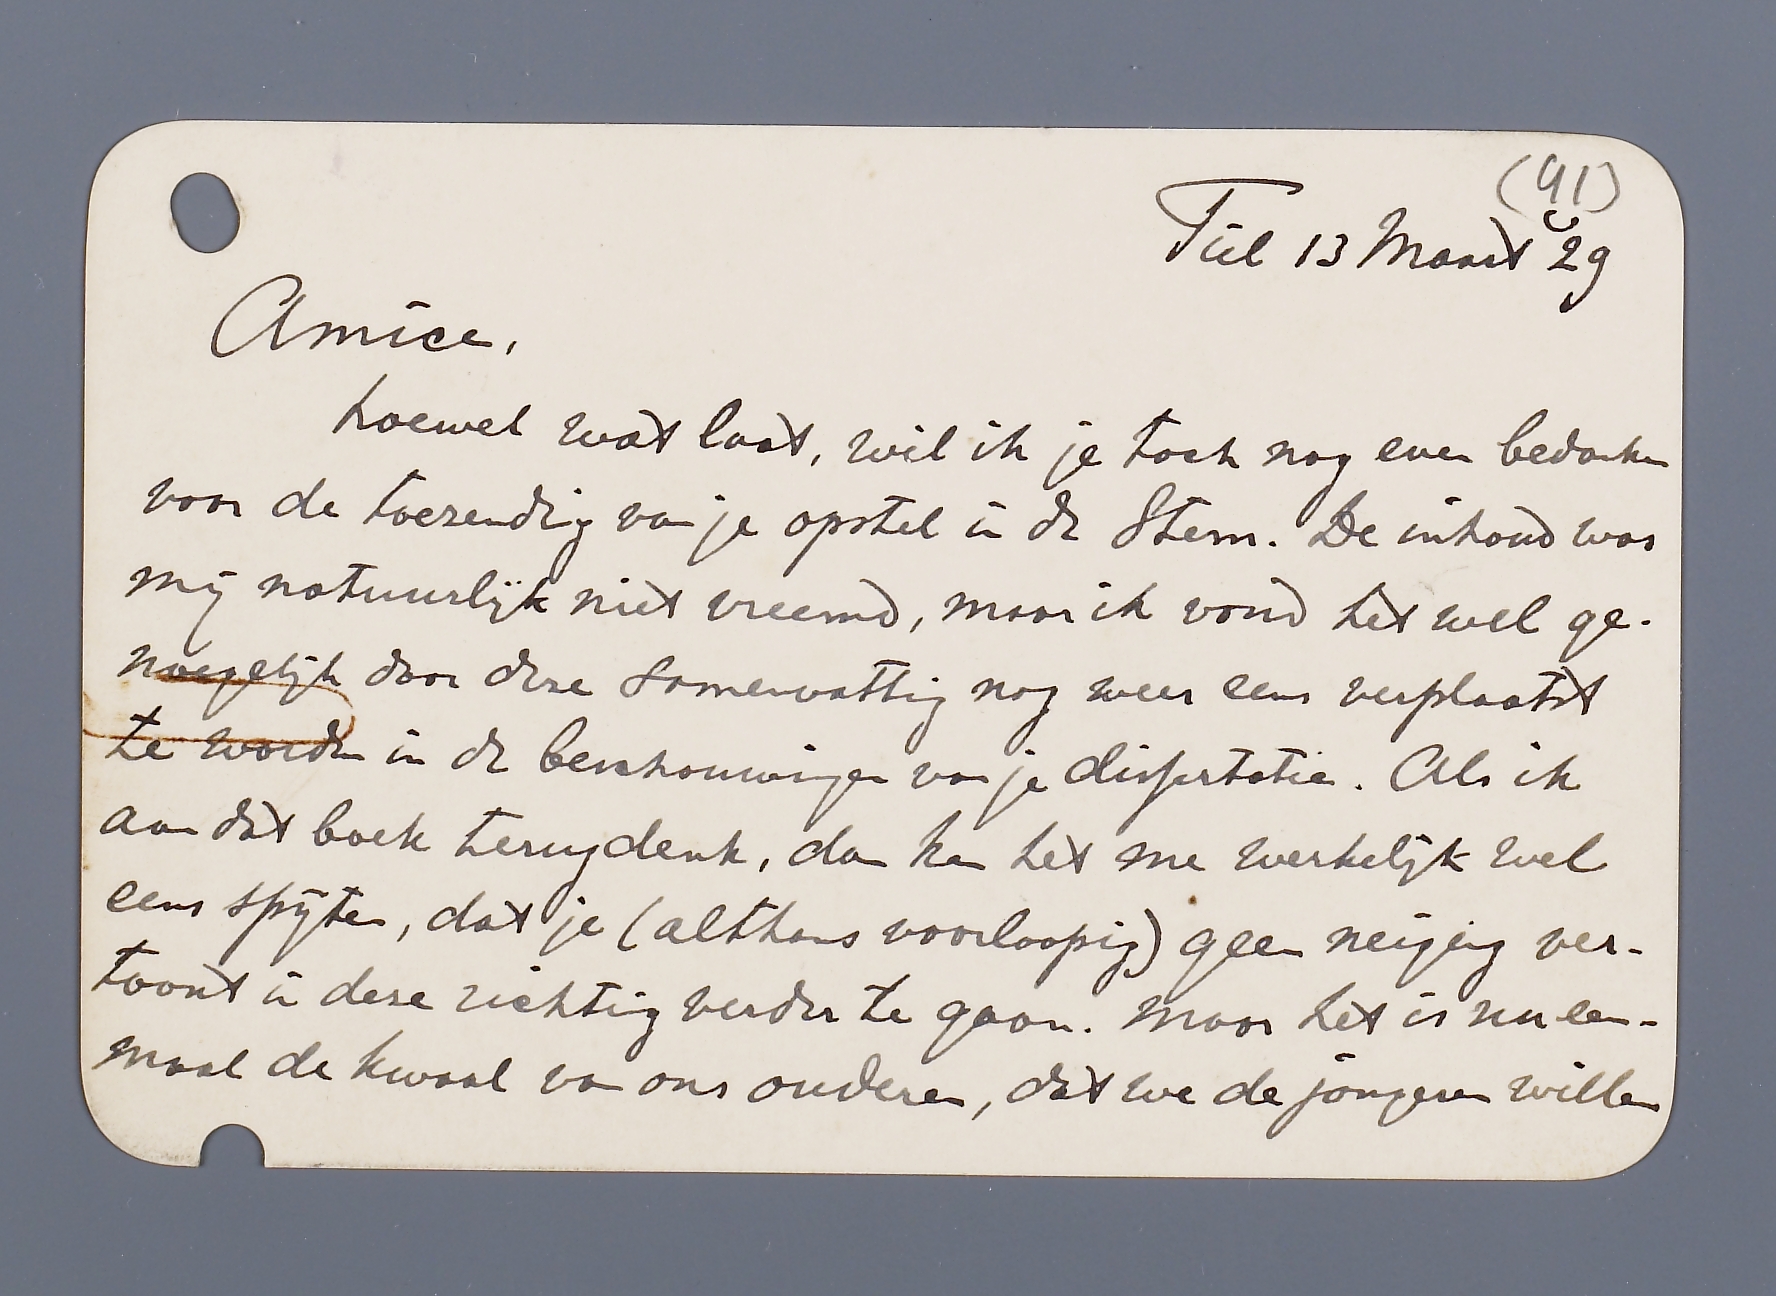 (91)
Tiel 13 Maart '29
Amice,
hoewel wat laat, wil ik je toch nog even bedanken
voor de toezending van je opstel in de Stem. De inhoud was
mij natuurlijk niet vreemd, maar ik vond het wel ge-
noegelijk door deze samenvatting nog weer eens verplaatst
te worden in de beschouwingen van je dissertatie. Als ik
aan dat boek terugdenk, dan kan het me werkelijk wel
eens spijten, dat je (althans voorloopig) geen neiging ver-
toont in deze richting verder te gaan. Maar het is nu een-
maal de kwaal van ons ouderen, dat we de jongeren willen